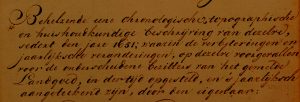 Behelzende eene chronologische, topographische
en huishoudkundige beschrijving van dezelve,
sedert den jare 1631, waarin de verbeteringen en
jaarlijksche veranderingen, op dezelve voorgevallen
voor de onderscheidene bezitters van het gemelde
Landgoed, in der tijd opgesteld, en 's jaarlijksch
aangeteekend zijn, door den eigenaar: